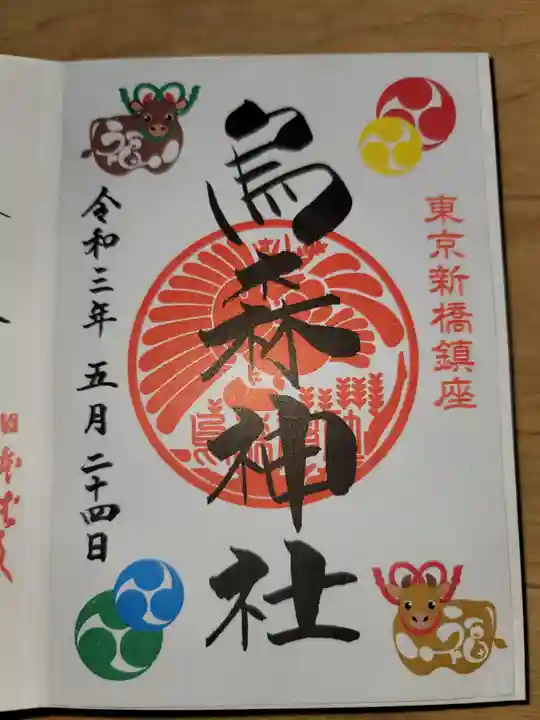 東京新橋鎮座
烏森神社
令和三年 五月 二十四日
福
福